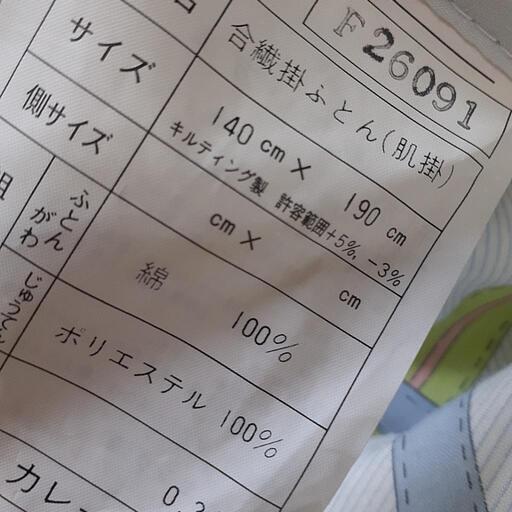 F26091
合繊掛ふとん(肌掛)
サイズ 140 cm × 190 cm
キルティング製 許容範囲+5%, -3%
側サイズ cm × cm
組
ふとんがわ 綿 100%
じゅうてん ポリエステル 100%
カレ